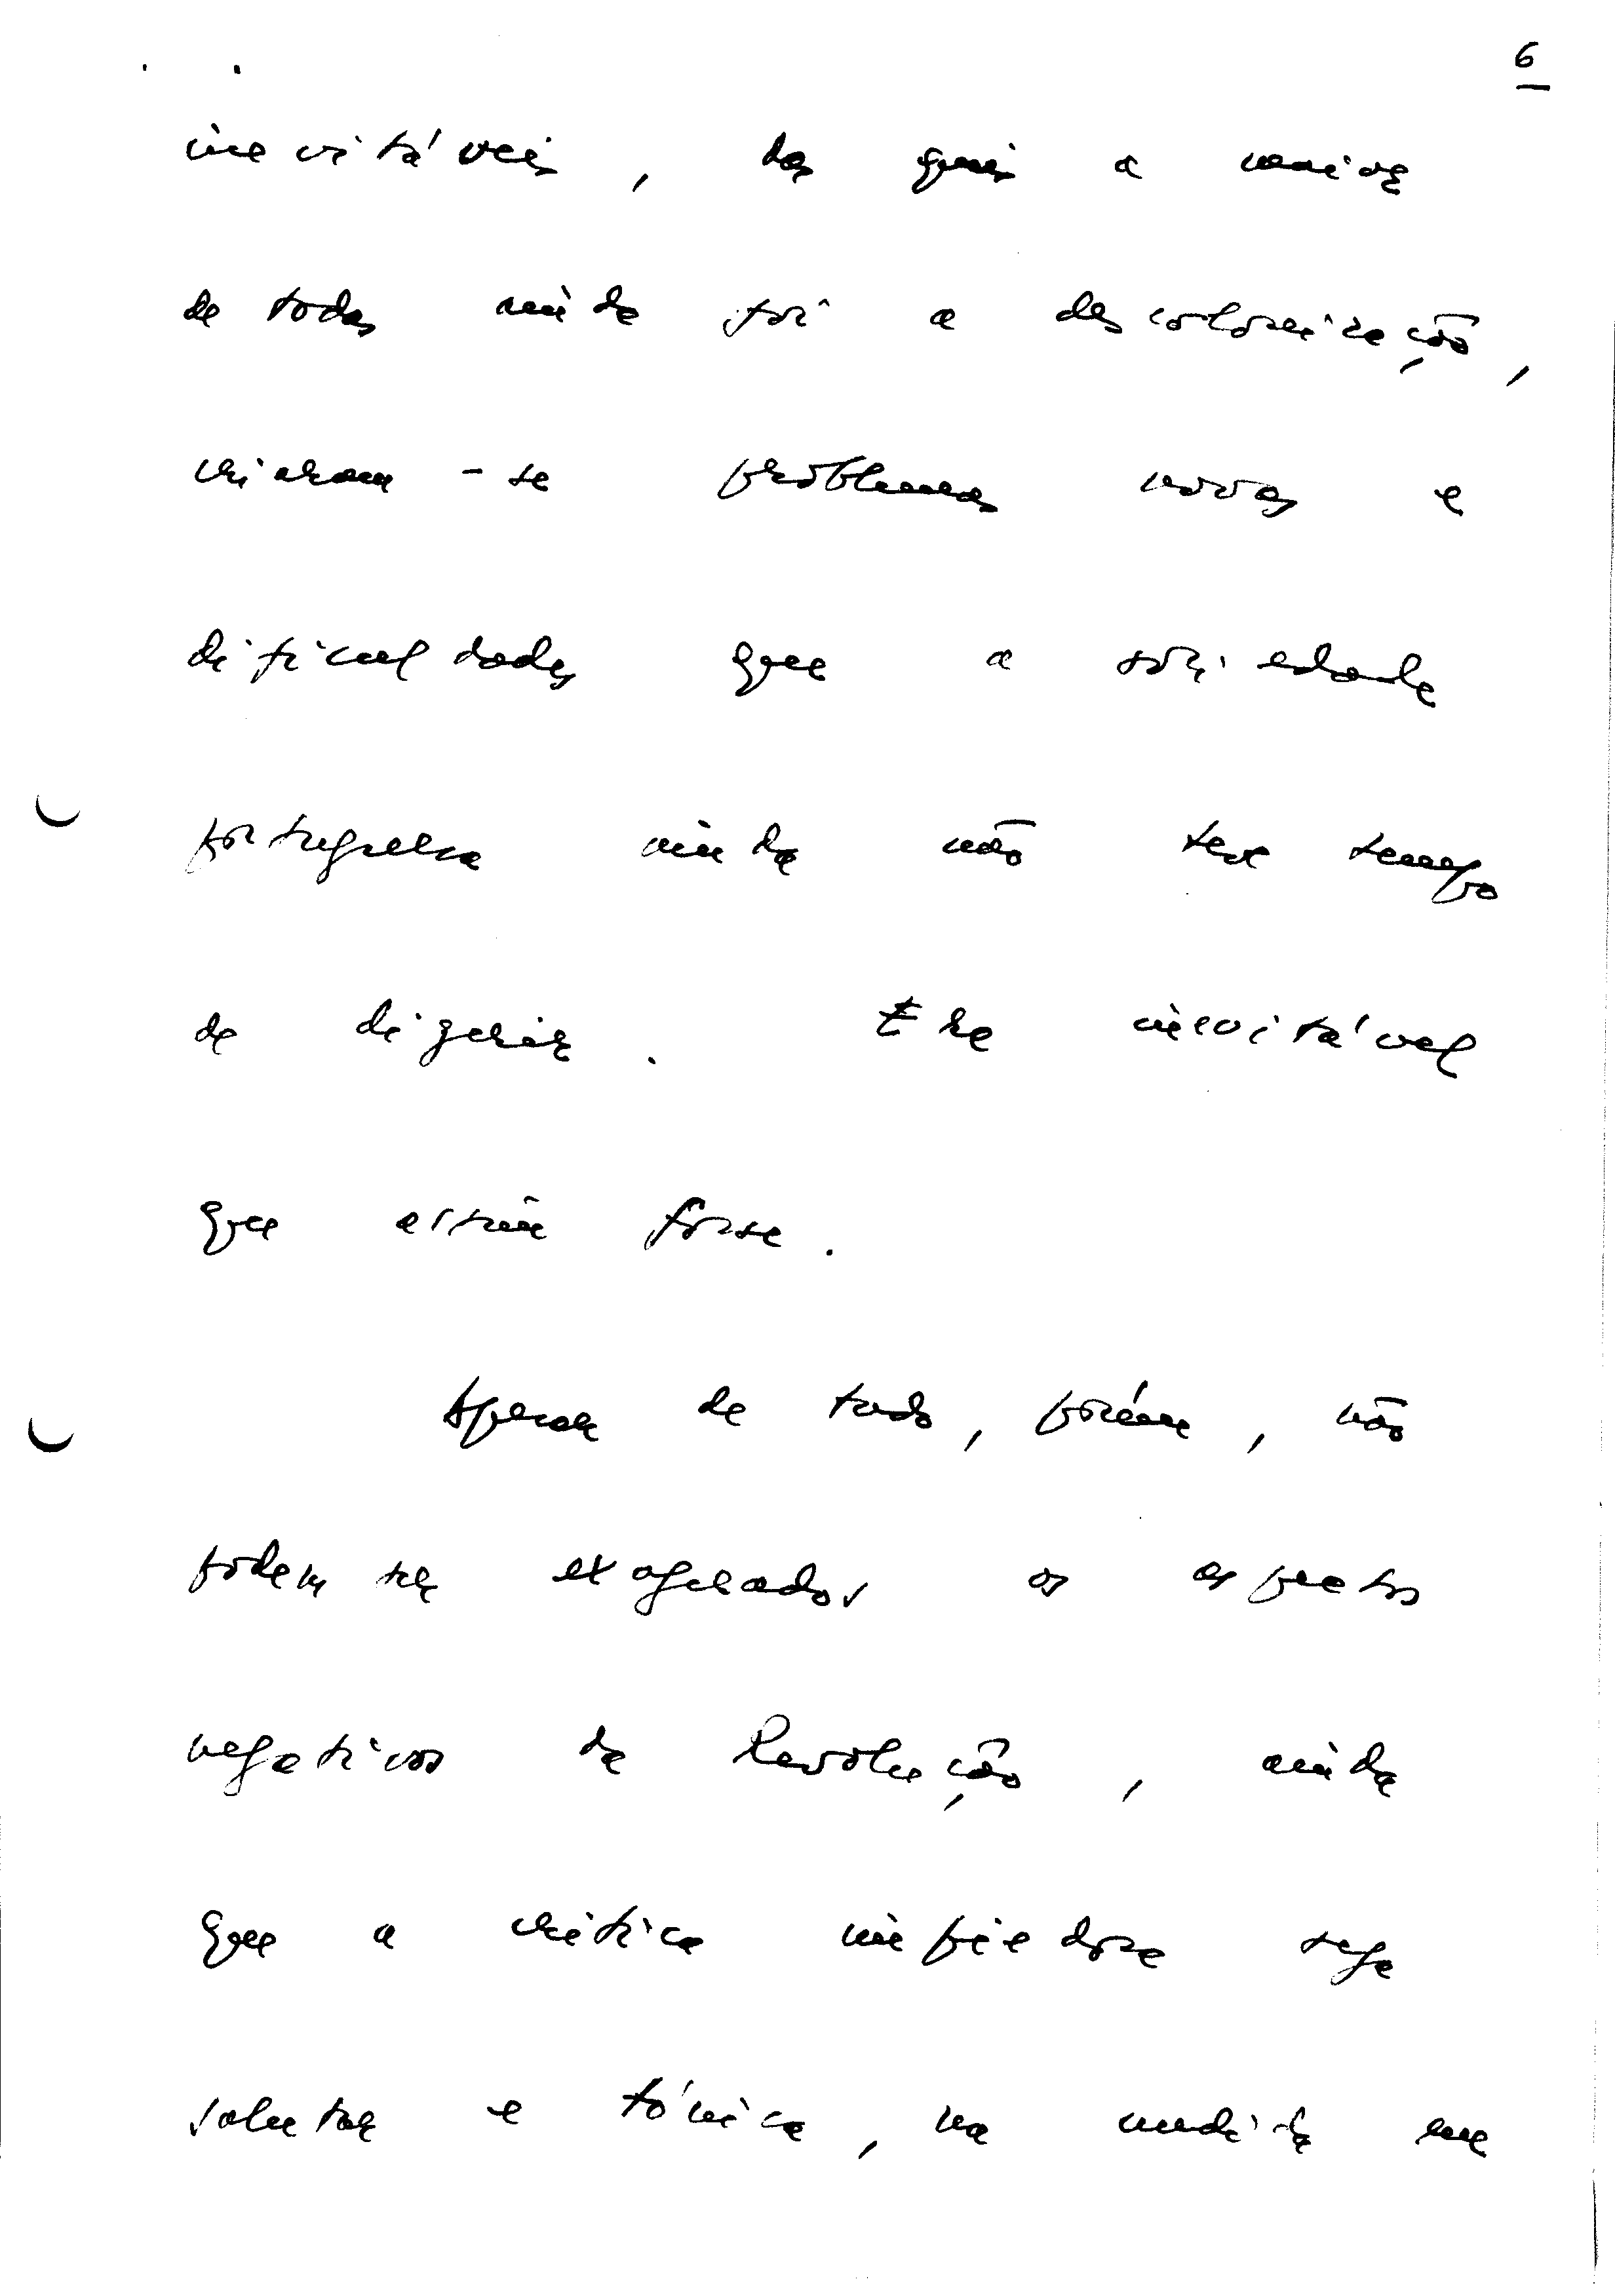 6
inevitáveis, das quais a maior
de todas ainda foi a descolonização,
criaram-se problemas novos e
dificuldades que a sociedade
portuguesa ainda não teve tempo
de digerir. Era inevitável
que assim fosse.
Apesar de tudo, porém, não
podem ser exagerados os aspectos
negativos da Revolução, ainda
que a crítica impiedosa seja
salutar e tónica, na medida em